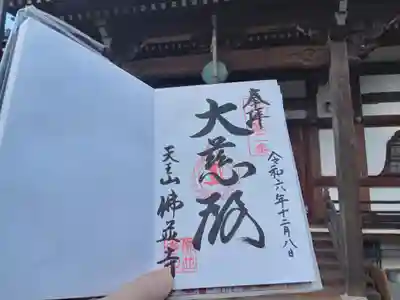 奉拝
令和六年十二月八日
大慈殿
天王山佛並寺